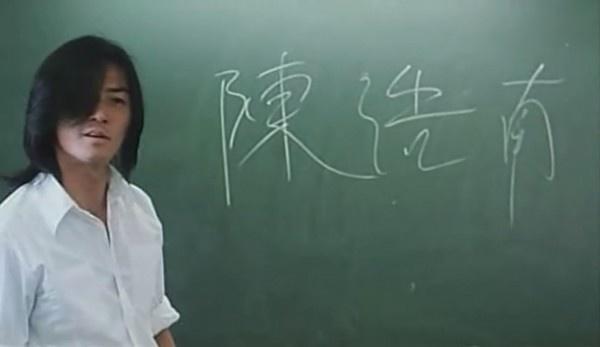 陳浩南